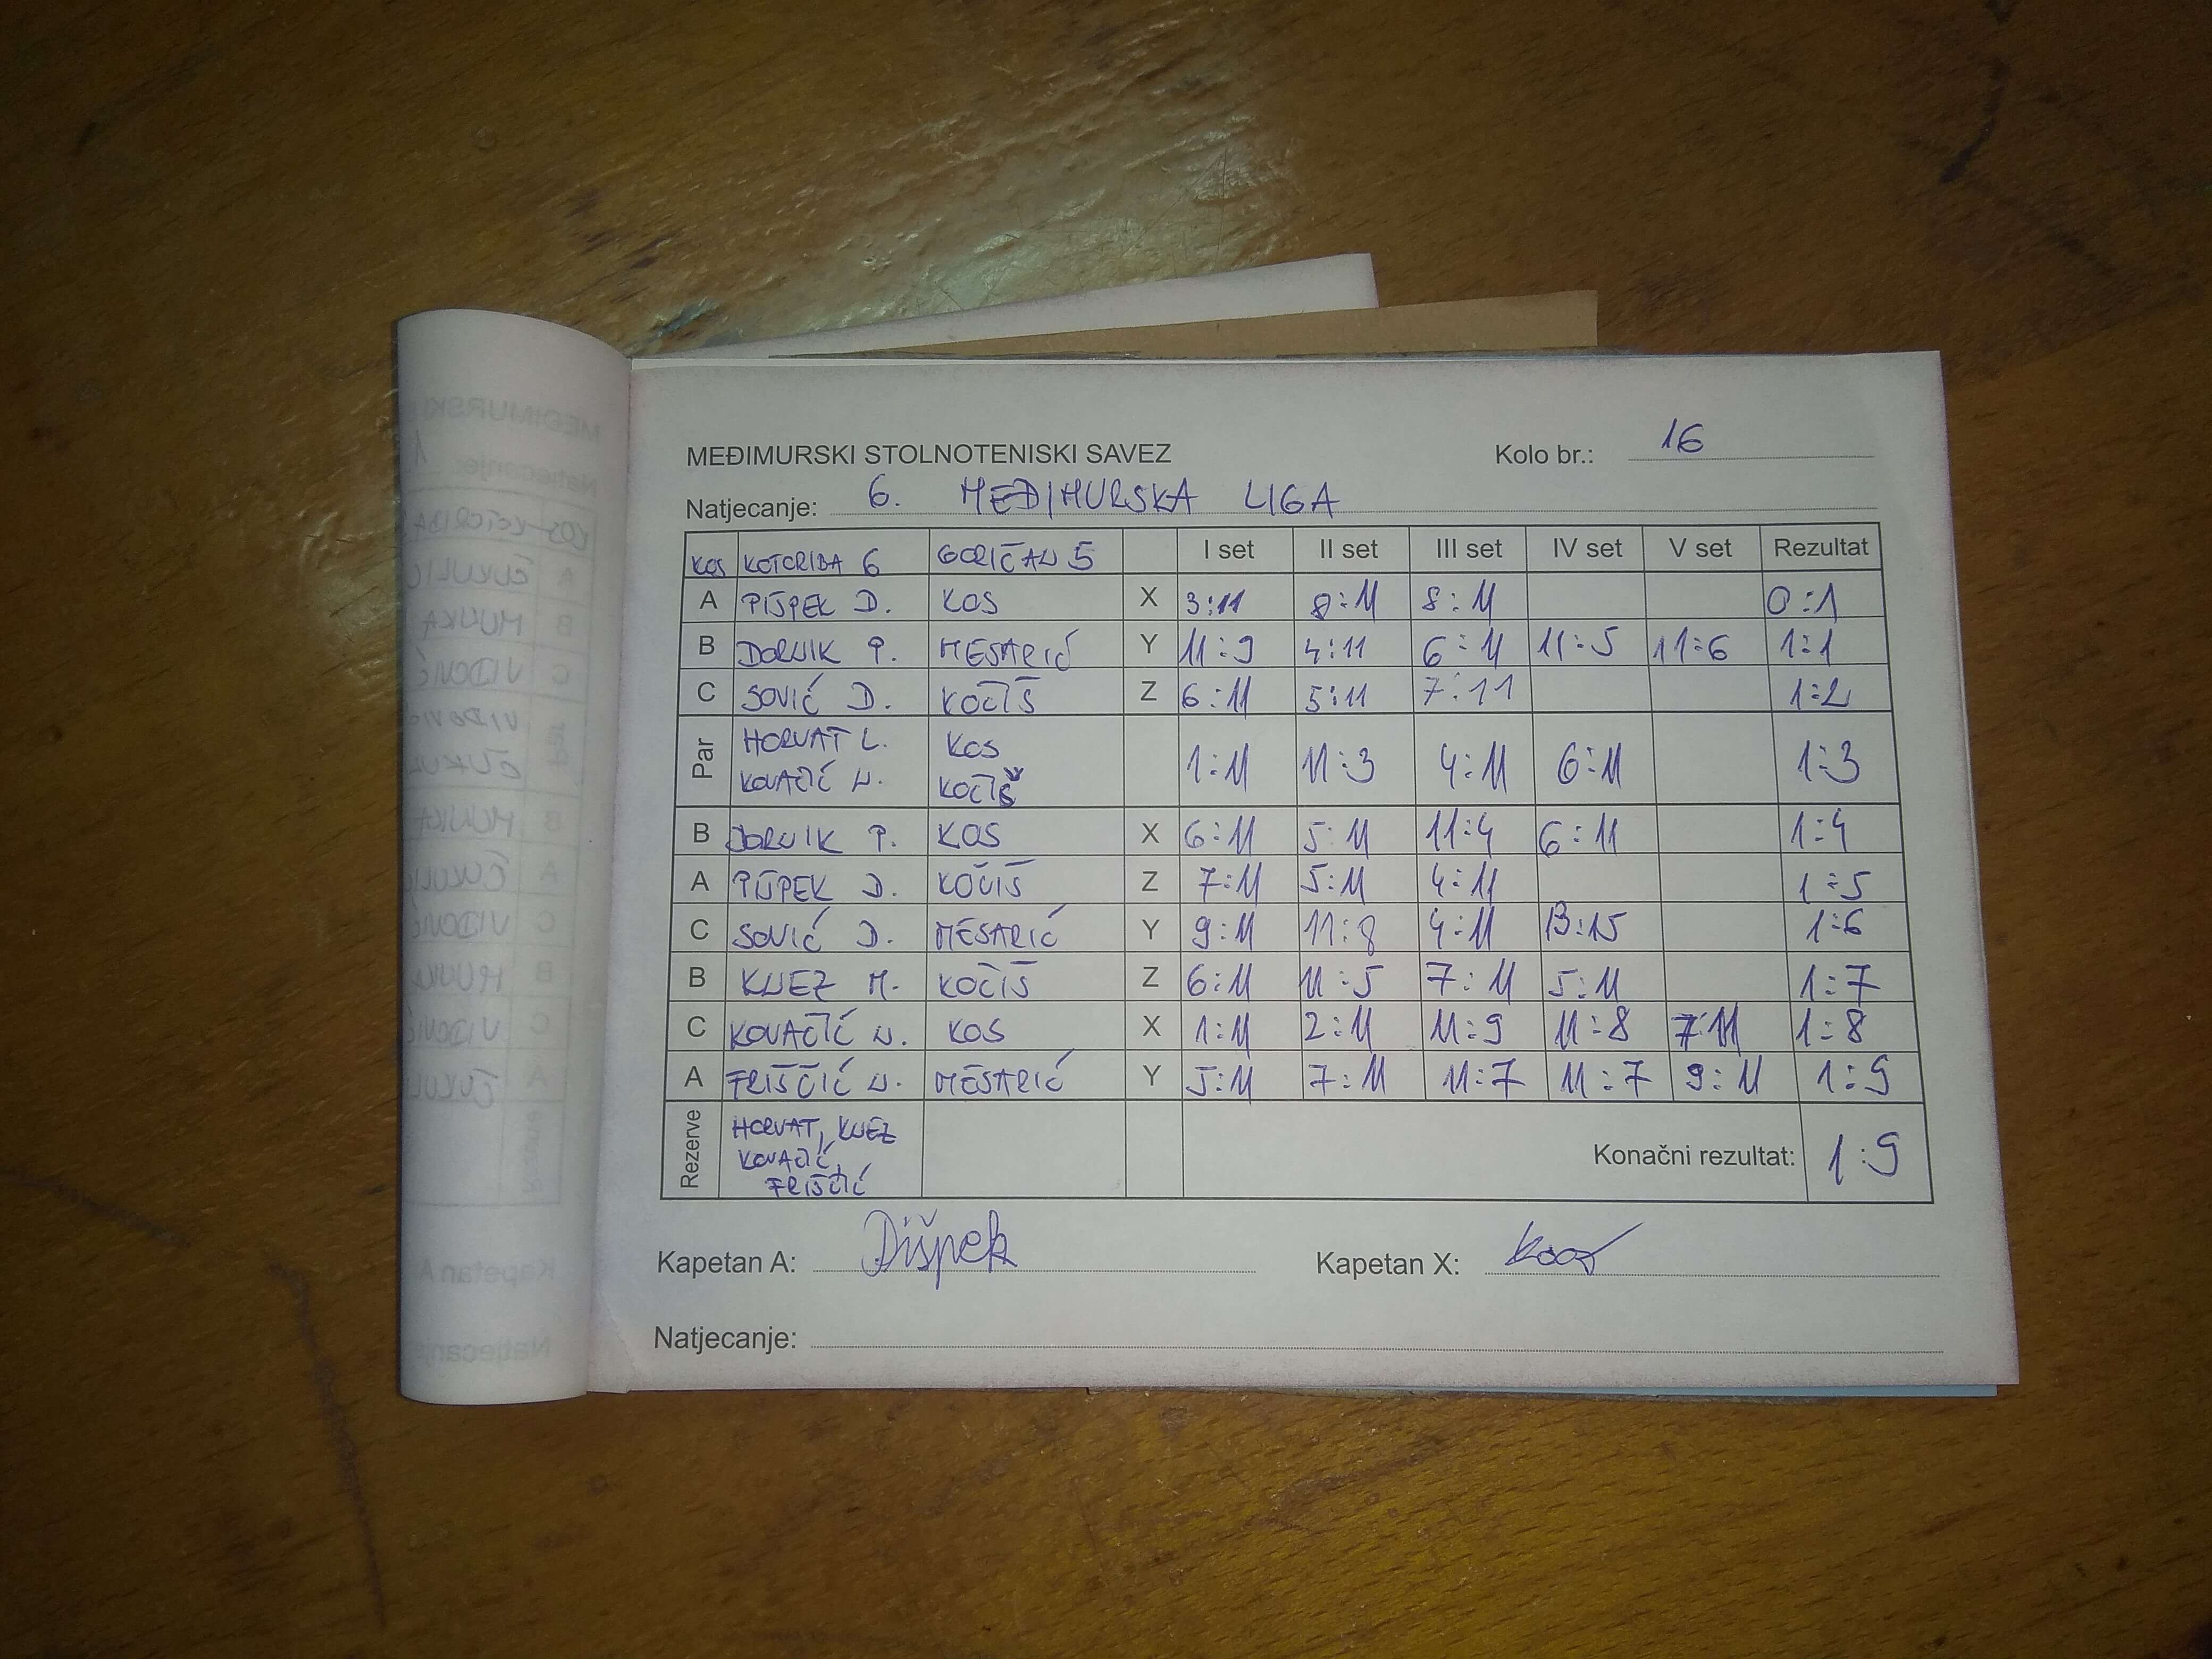 MEĐIMURSKI STOLNOTENISKI SAVEZ Kolo br.: 16
Natjecanje: 6. MEĐIMURSKA LIGA
KOS KOTORIBA 6 GORIČAN 5 I set II set III set IV set V set Rezultat
A PIŠPEK D. KOS X 3:11 8:11 8:11 0:1
B DORNIK P. MESARIĆ Y 11:9 4:11 6:11 11:5 11:6 1:1
C SOVIĆ D. KOČIŠ Z 6:11 5:11 7:11 1:2
Par HORVAT L. KOS 1:11 11:3 4:11 6:11 1:3
KOVAČIĆ N. KOČIŠ
B DORNIK P. KOS X 6:11 5:11 11:4 6:11 1:4
A PIŠPEK D. KOČIŠ Z 7:11 5:11 4:11 1:5
C SOVIĆ D. MESARIĆ Y 9:11 11:8 4:11 13:15 1:6
B KNEZ M. KOČIŠ Z 6:11 11:5 7:11 5:11 1:7
C KOVAČIĆ N. KOS X 1:11 2:11 11:9 11:8 7:11 1:8
A FRIŠČIĆ N. MESARIĆ Y 5:11 7:11 11:7 11:7 9:11 1:9
Rezerve HORVAT, KNEZ
KOVAČIĆ, Konačni rezultat: 1:9
FRIŠČIĆ
Kapetan A: Pišpek Kapetan X: Kos
Natjecanje: